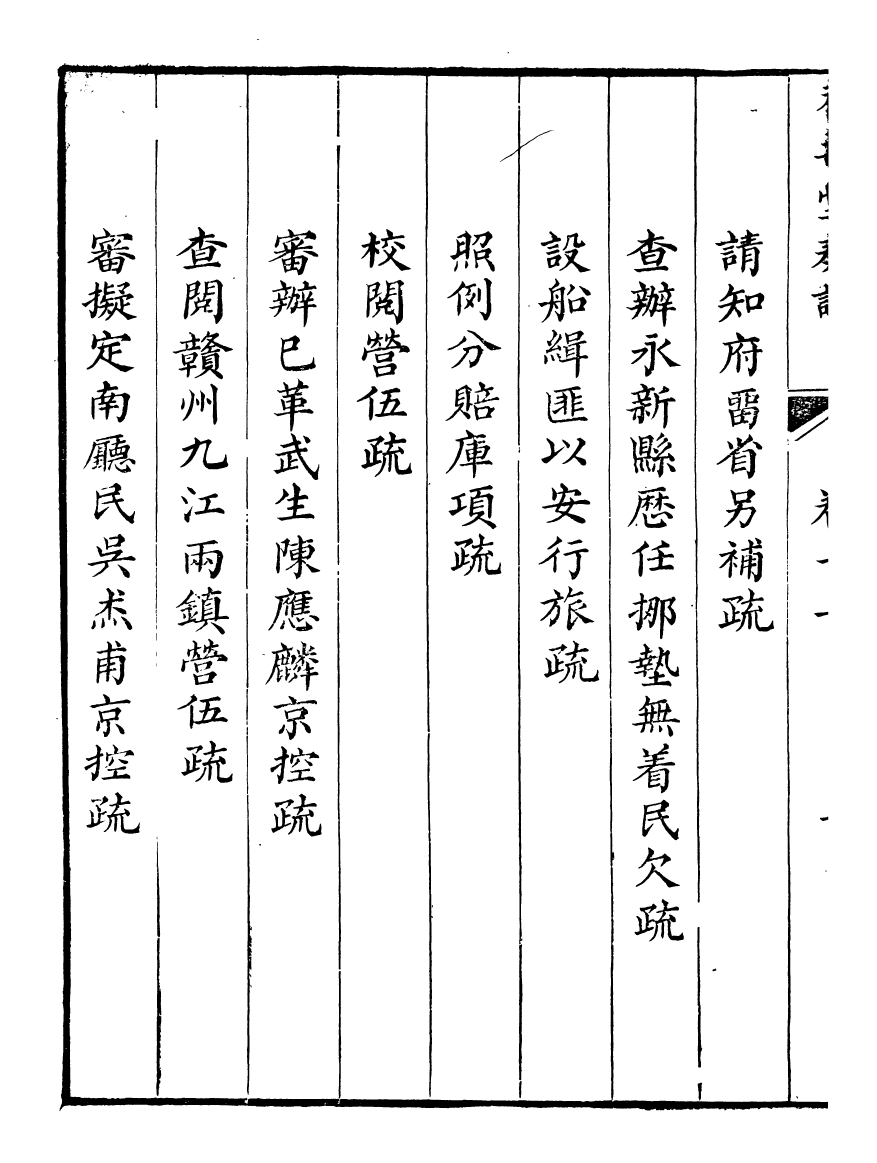 請知府畱省另補疏
查辦永新縣歷任挪墊無着民欠疏
設船緝匪以安行旅疏
照例分賠庫項疏
校閱營伍疏
審辦已革武生陳應麟京控疏
查閱贛州九江兩鎮營伍疏
審擬定南廳民吳烋甫京控疏